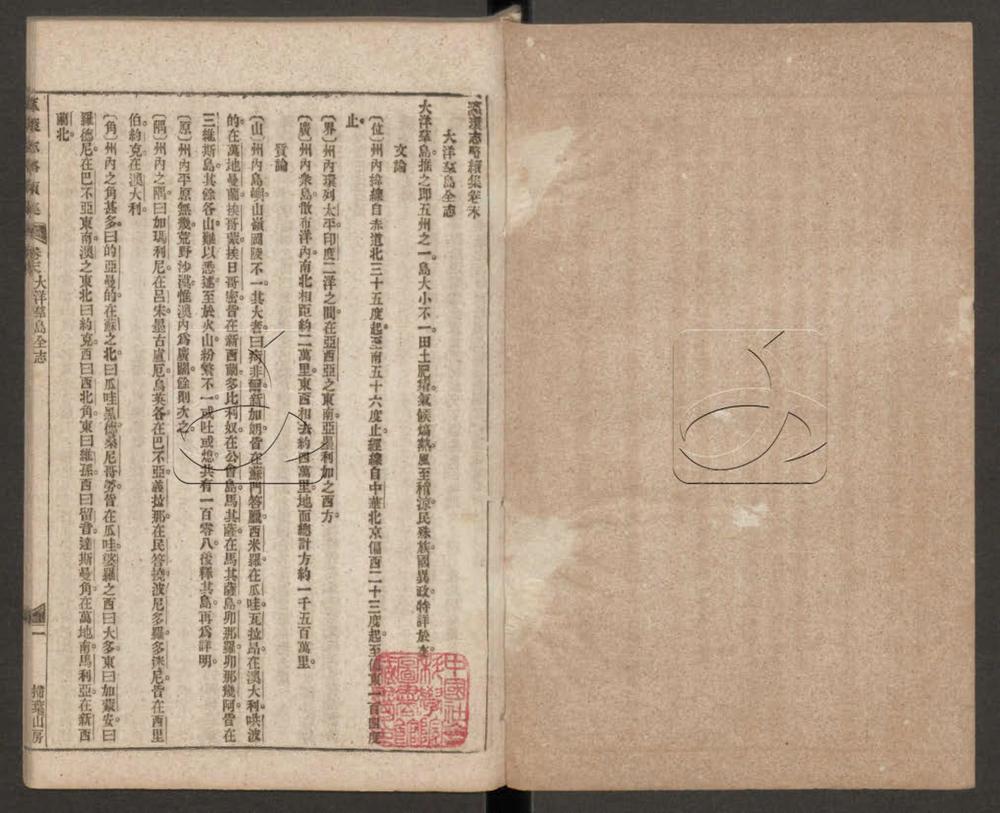 瀛環志略續集卷末
大洋羣島全志
大洋羣島推之即五州之一島大小不一田土肥瘠氣候熇熱風至稍涼民殊族國異政特詳於左
文論
〔位〕州內緯線自赤道北三十五度起至南五十六度止經線自中華北京偏西二十三度起至偏東一百四度
止
〔界〕州內環列太平印度二洋之間在亞西亞之東南亞墨利加之西方
〔廣〕州內衆島散布洋內南北相距約二萬里東西相去約四萬里地面總計方約一千五百萬里
質論
〔山〕州內島嶼山嶺岡陵不一其大者曰痾非爾新加朗皆在蘇門答臘西米羅在瓜哇瓦拉昂在澳大利哄波
的在萬地曼蘭挨哥蒙挨日哥密皆在新西蘭多比利奴在公會島馬其薩在馬其薩島卯那羅卯那幾阿皆在
三維斯島其餘各山難以悉述至於火山紛繁不一或吐或熄共有一百零八後釋其島再爲詳明
〔原〕州內平原無幾荒野沙漠惟澳內爲廣闊餘則次之
〔隅〕州內之隅曰如瑪利尼在呂宋墨古盧厄烏英各在巴不亞義拉那在民答撓波尼多羅多洣尼皆在西里
伯約克在澳大利
〔角〕州內之角甚多曰的亞曼的在蘇之北曰瓜哇黑德桑尼哥勞皆在瓜哇婆羅之西曰大多東曰如蒙安曰
羅德尼在巴不亞東南澳之東北曰約克西曰西北角東曰維孫西曰留音達斯曼角在萬地南馬利亞在新西
蘭北
大洋羣島全志
一
掃葉山房